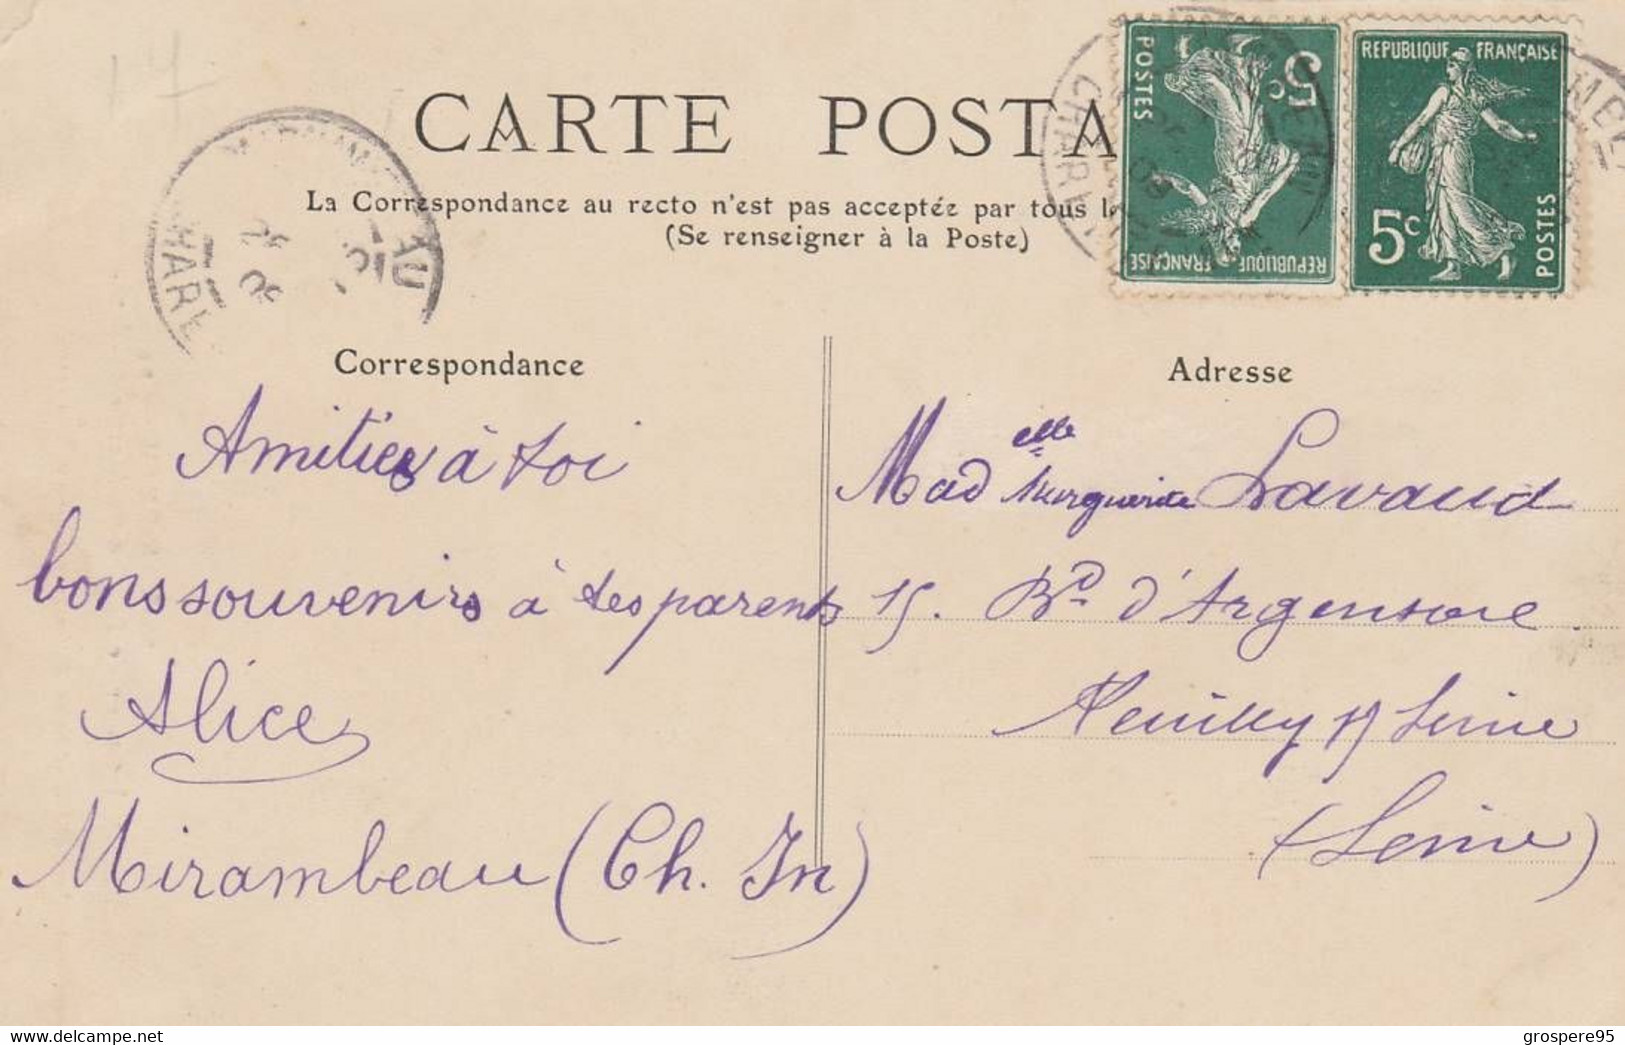 CARTE POSTA
La Correspondance au recto n'est pas acceptée par tous l
(Se renseigner à la Poste)
REPUBLIQUE FRANÇAISE
5c
POSTES
REPUBLIQUE FRANÇAISE
5c
POSTES
Correspondance
Amitiés à toi
bons souvenirs à tes parents
Alice
Mirambeau (Ch. In)
Adresse
Madelle Marguerite Lavaud
15. Bd d'Argenson
Neuilly s/ Seine
(Seine)
grospere95